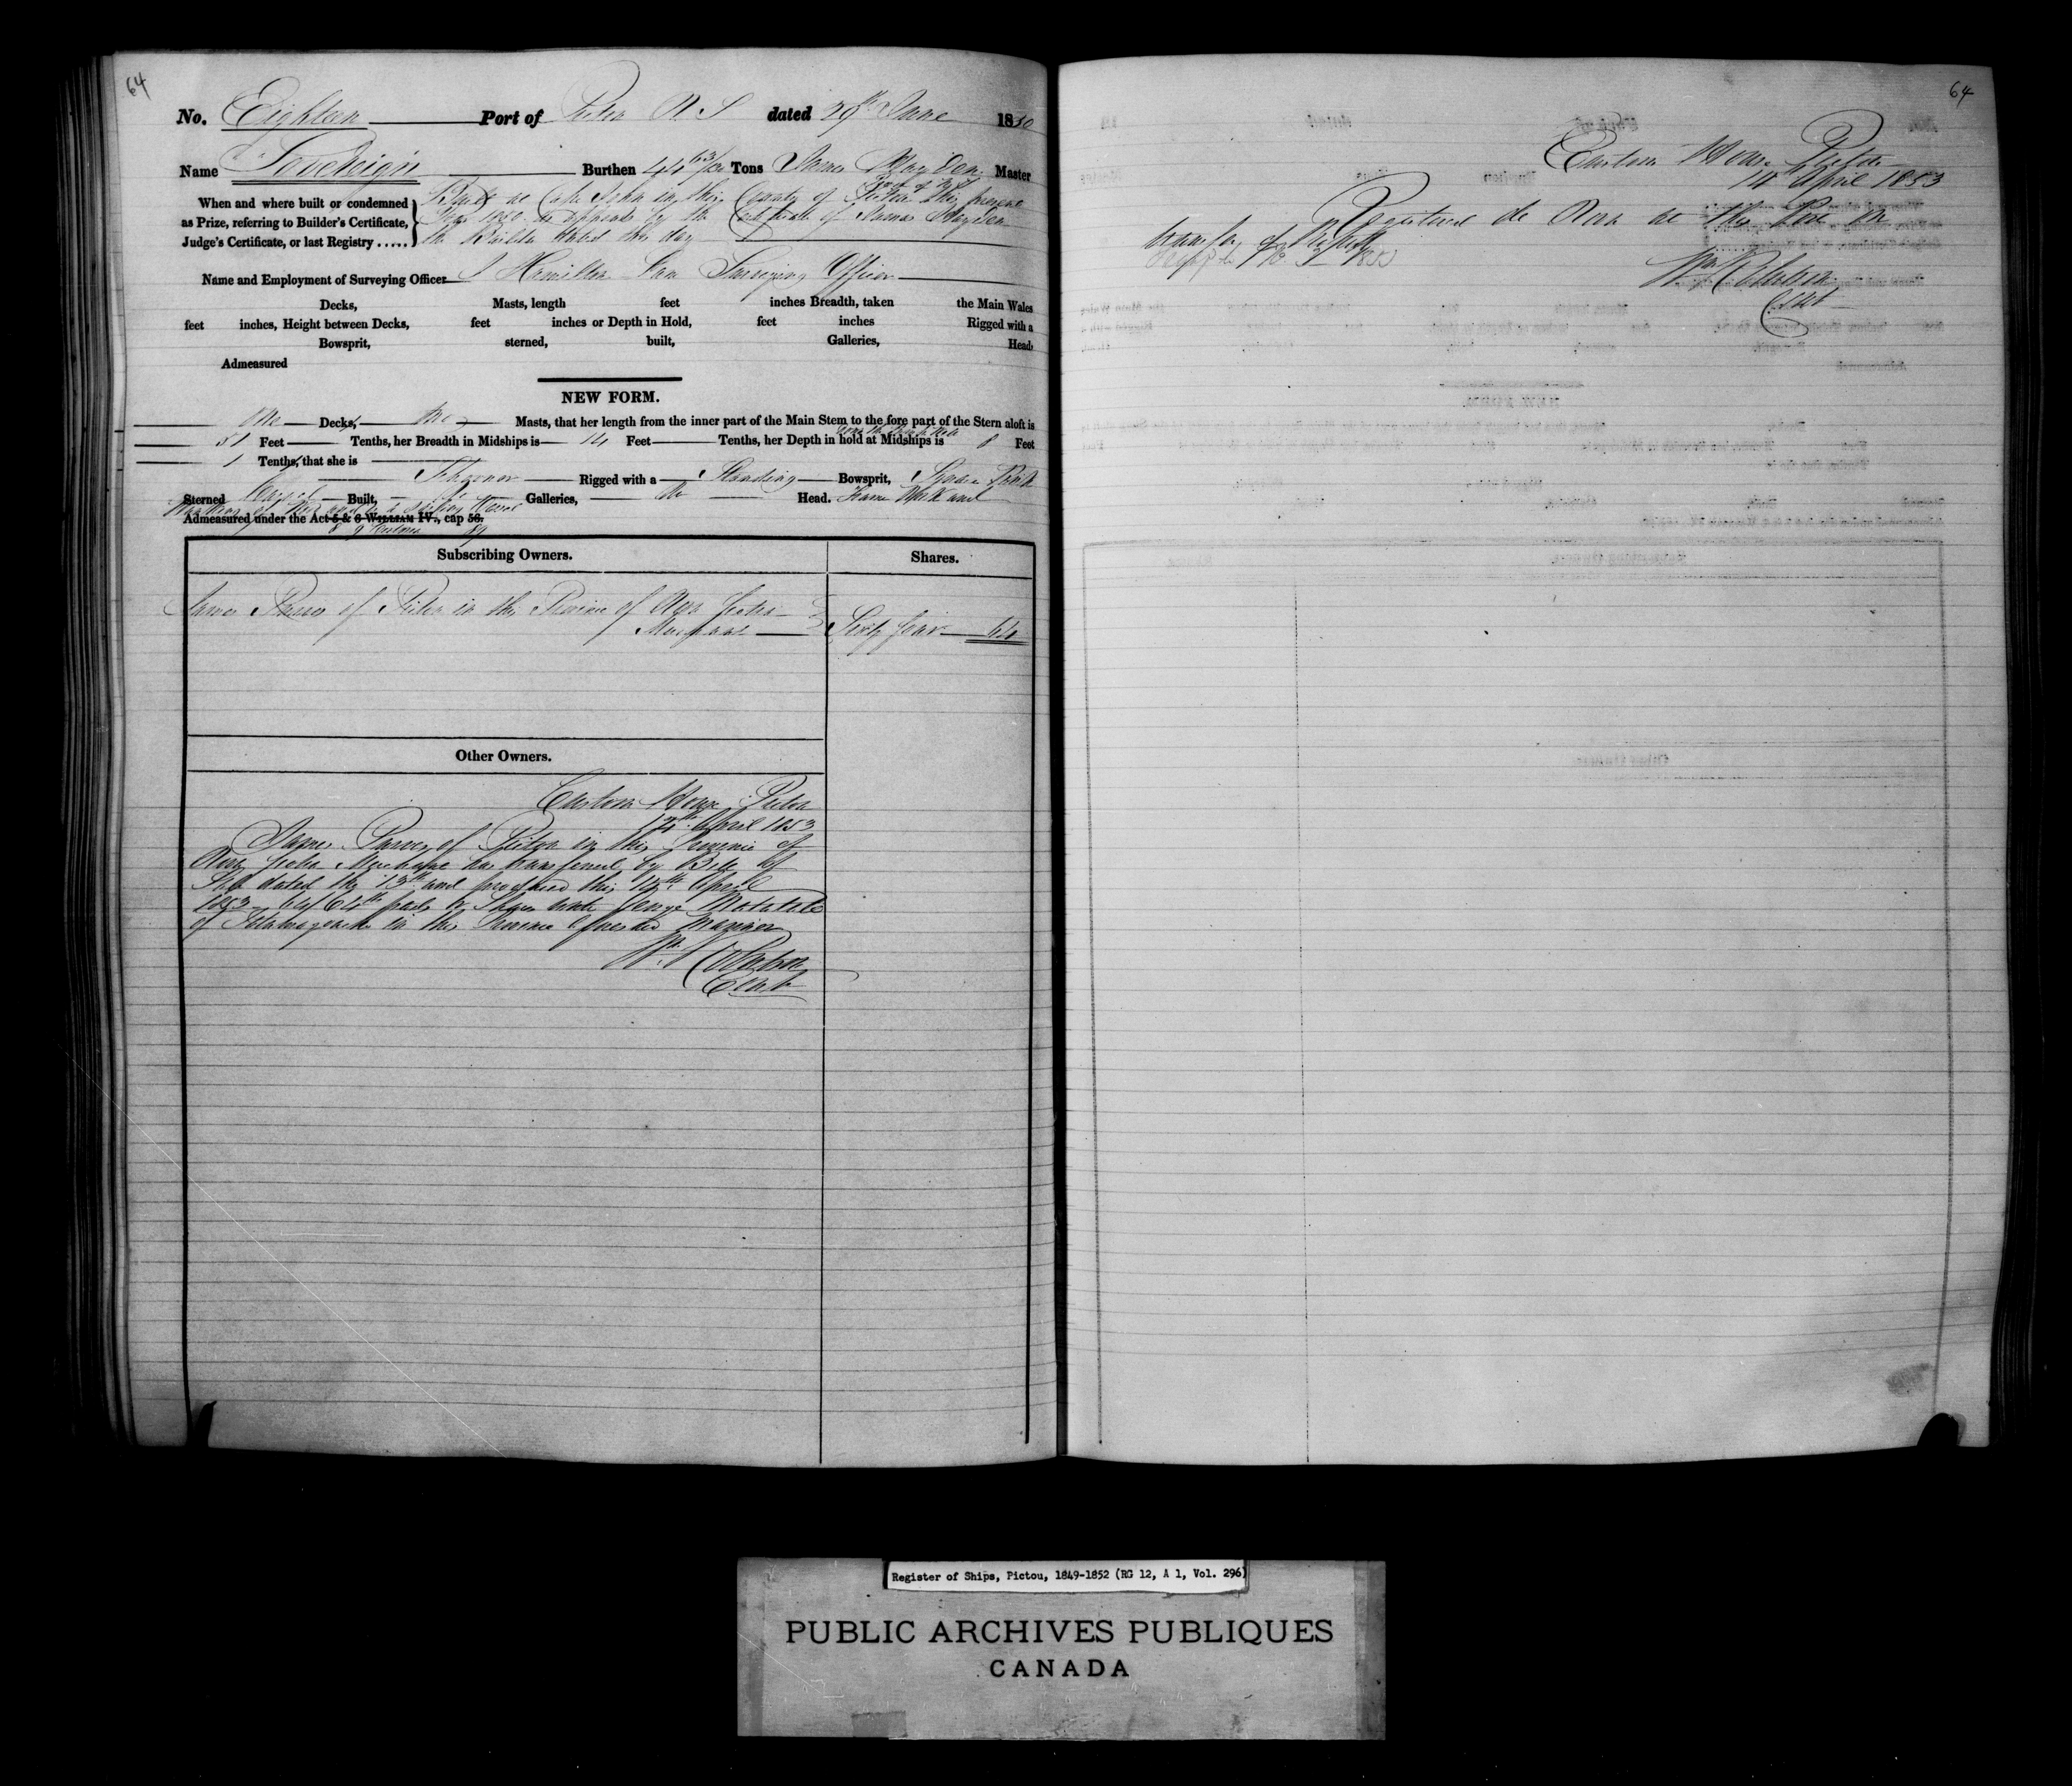 64
No. Eighteen Port of Pictou N S dated 29th June 1850
Name "Sovereign" Burthen 44 63/ Tons James Hayden Master
When and where built or condemned
as Prize, referring to Builder's Certificate,
Judge's Certificate, or last Registry .....
Built at Cape John in the County of Pictou this present
Year 1850 as appears by the Certificate of James Hayden
the Builder dated this day
Name and Employment of Surveying Officer Hamilton Surveying Officer
Decks, Masts, length feet inches Breadth, taken the Main Wales
feet inches, Height between Decks, feet inches or Depth in Hold, feet inches Rigged with a
Bowsprit, sterned, built, Galleries, Head.
Admeasured
NEW FORM.
One Decks, Two Masts, that her length from the inner part of the Main Stem to the fore part of the Stern aloft is
51 Feet Tenths, her Breadth in Midships is 14 Feet Tenths, her Depth in hold at Midships is 8 Feet
1 Tenths, that she is
Schooner Rigged with a Standing Bowsprit, Square
Sterned Carvel Built, No Galleries, No Head. Frame Work and
Admeasured under the Act 5 & 6 WILLIAM IV., cap 56.
8 & 9 Victoria 89
Subscribing Owners. Shares.
James Purves of Pictou in the Province of Nova Scotia
Merchant Sixty four 64
Other Owners.
Custom House Pictou
14th April 1853
James Purves of Pictou in the Province of
Nova Scotia Merchant has transferred by Bill of
Sale dated the 13th and produced this 14th April
1853 64/64th parts or Shares unto George
of Tatamagouche in the Province aforesaid Mariner
Wm Robertson
Clerk
64
Custom House Pictou
14 April 1853
Registered de Novo at this Port on
transfer of Property
Wm Robertson
Clerk
Register of Ships, Pictou, 1849-1852 (RG 12, A 1, Vol. 296)
PUBLIC ARCHIVES PUBLIQUES
CANADA